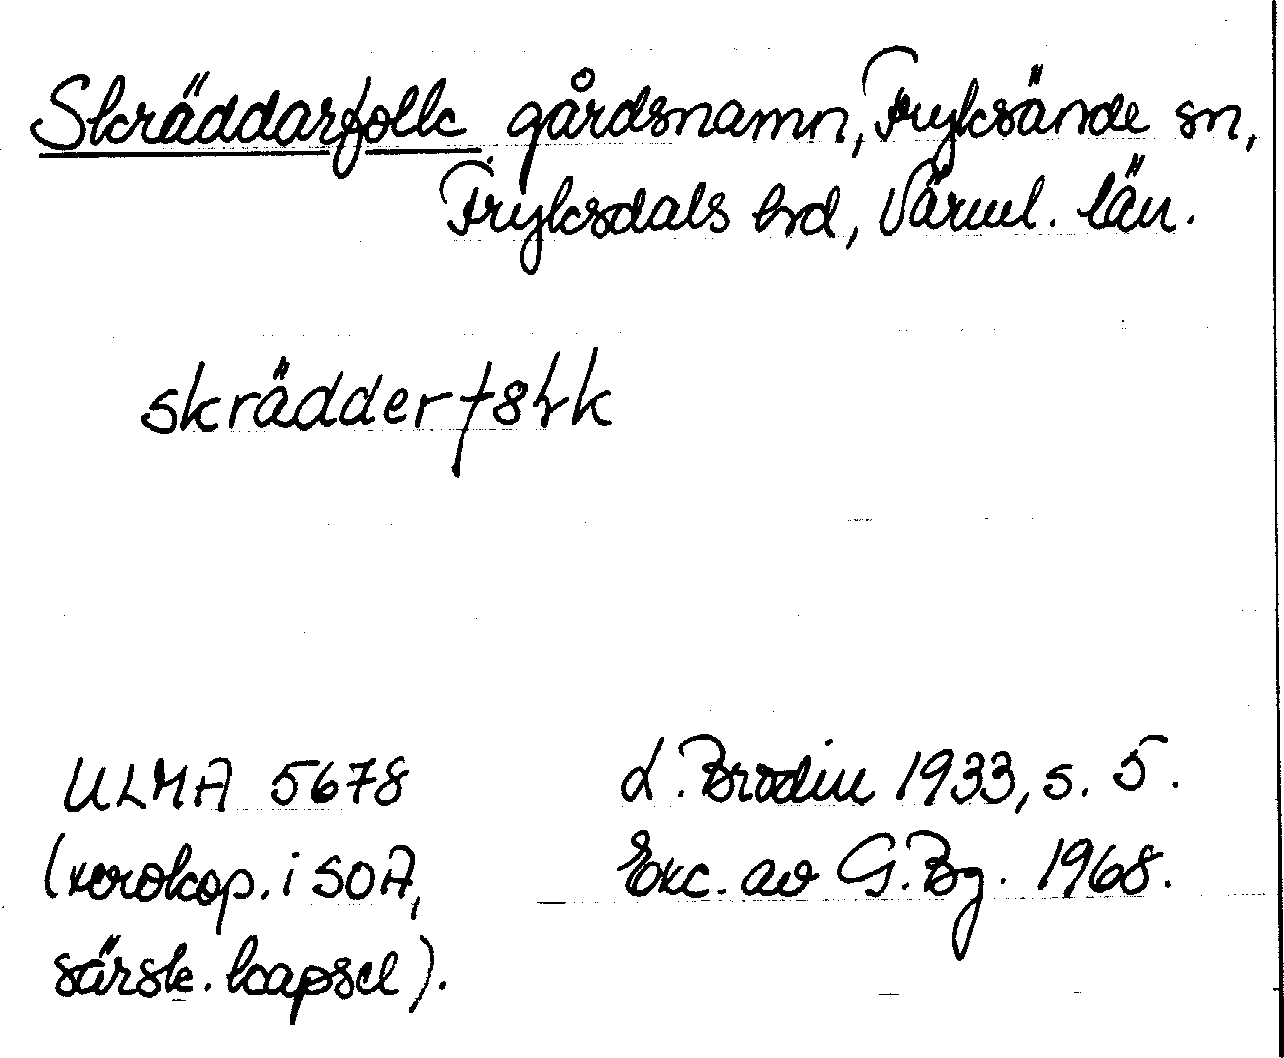 Skräddarfolk, gårdsnamn, Fryksände sn,
Fryksdals hd, Värml. län.
skrädderf8łk
ULMA 5678
(xerokop. i SOA,
särsk. kapsel).
L. Brodin 1933, s. 5.
Exc. av G. Bg. 1968.